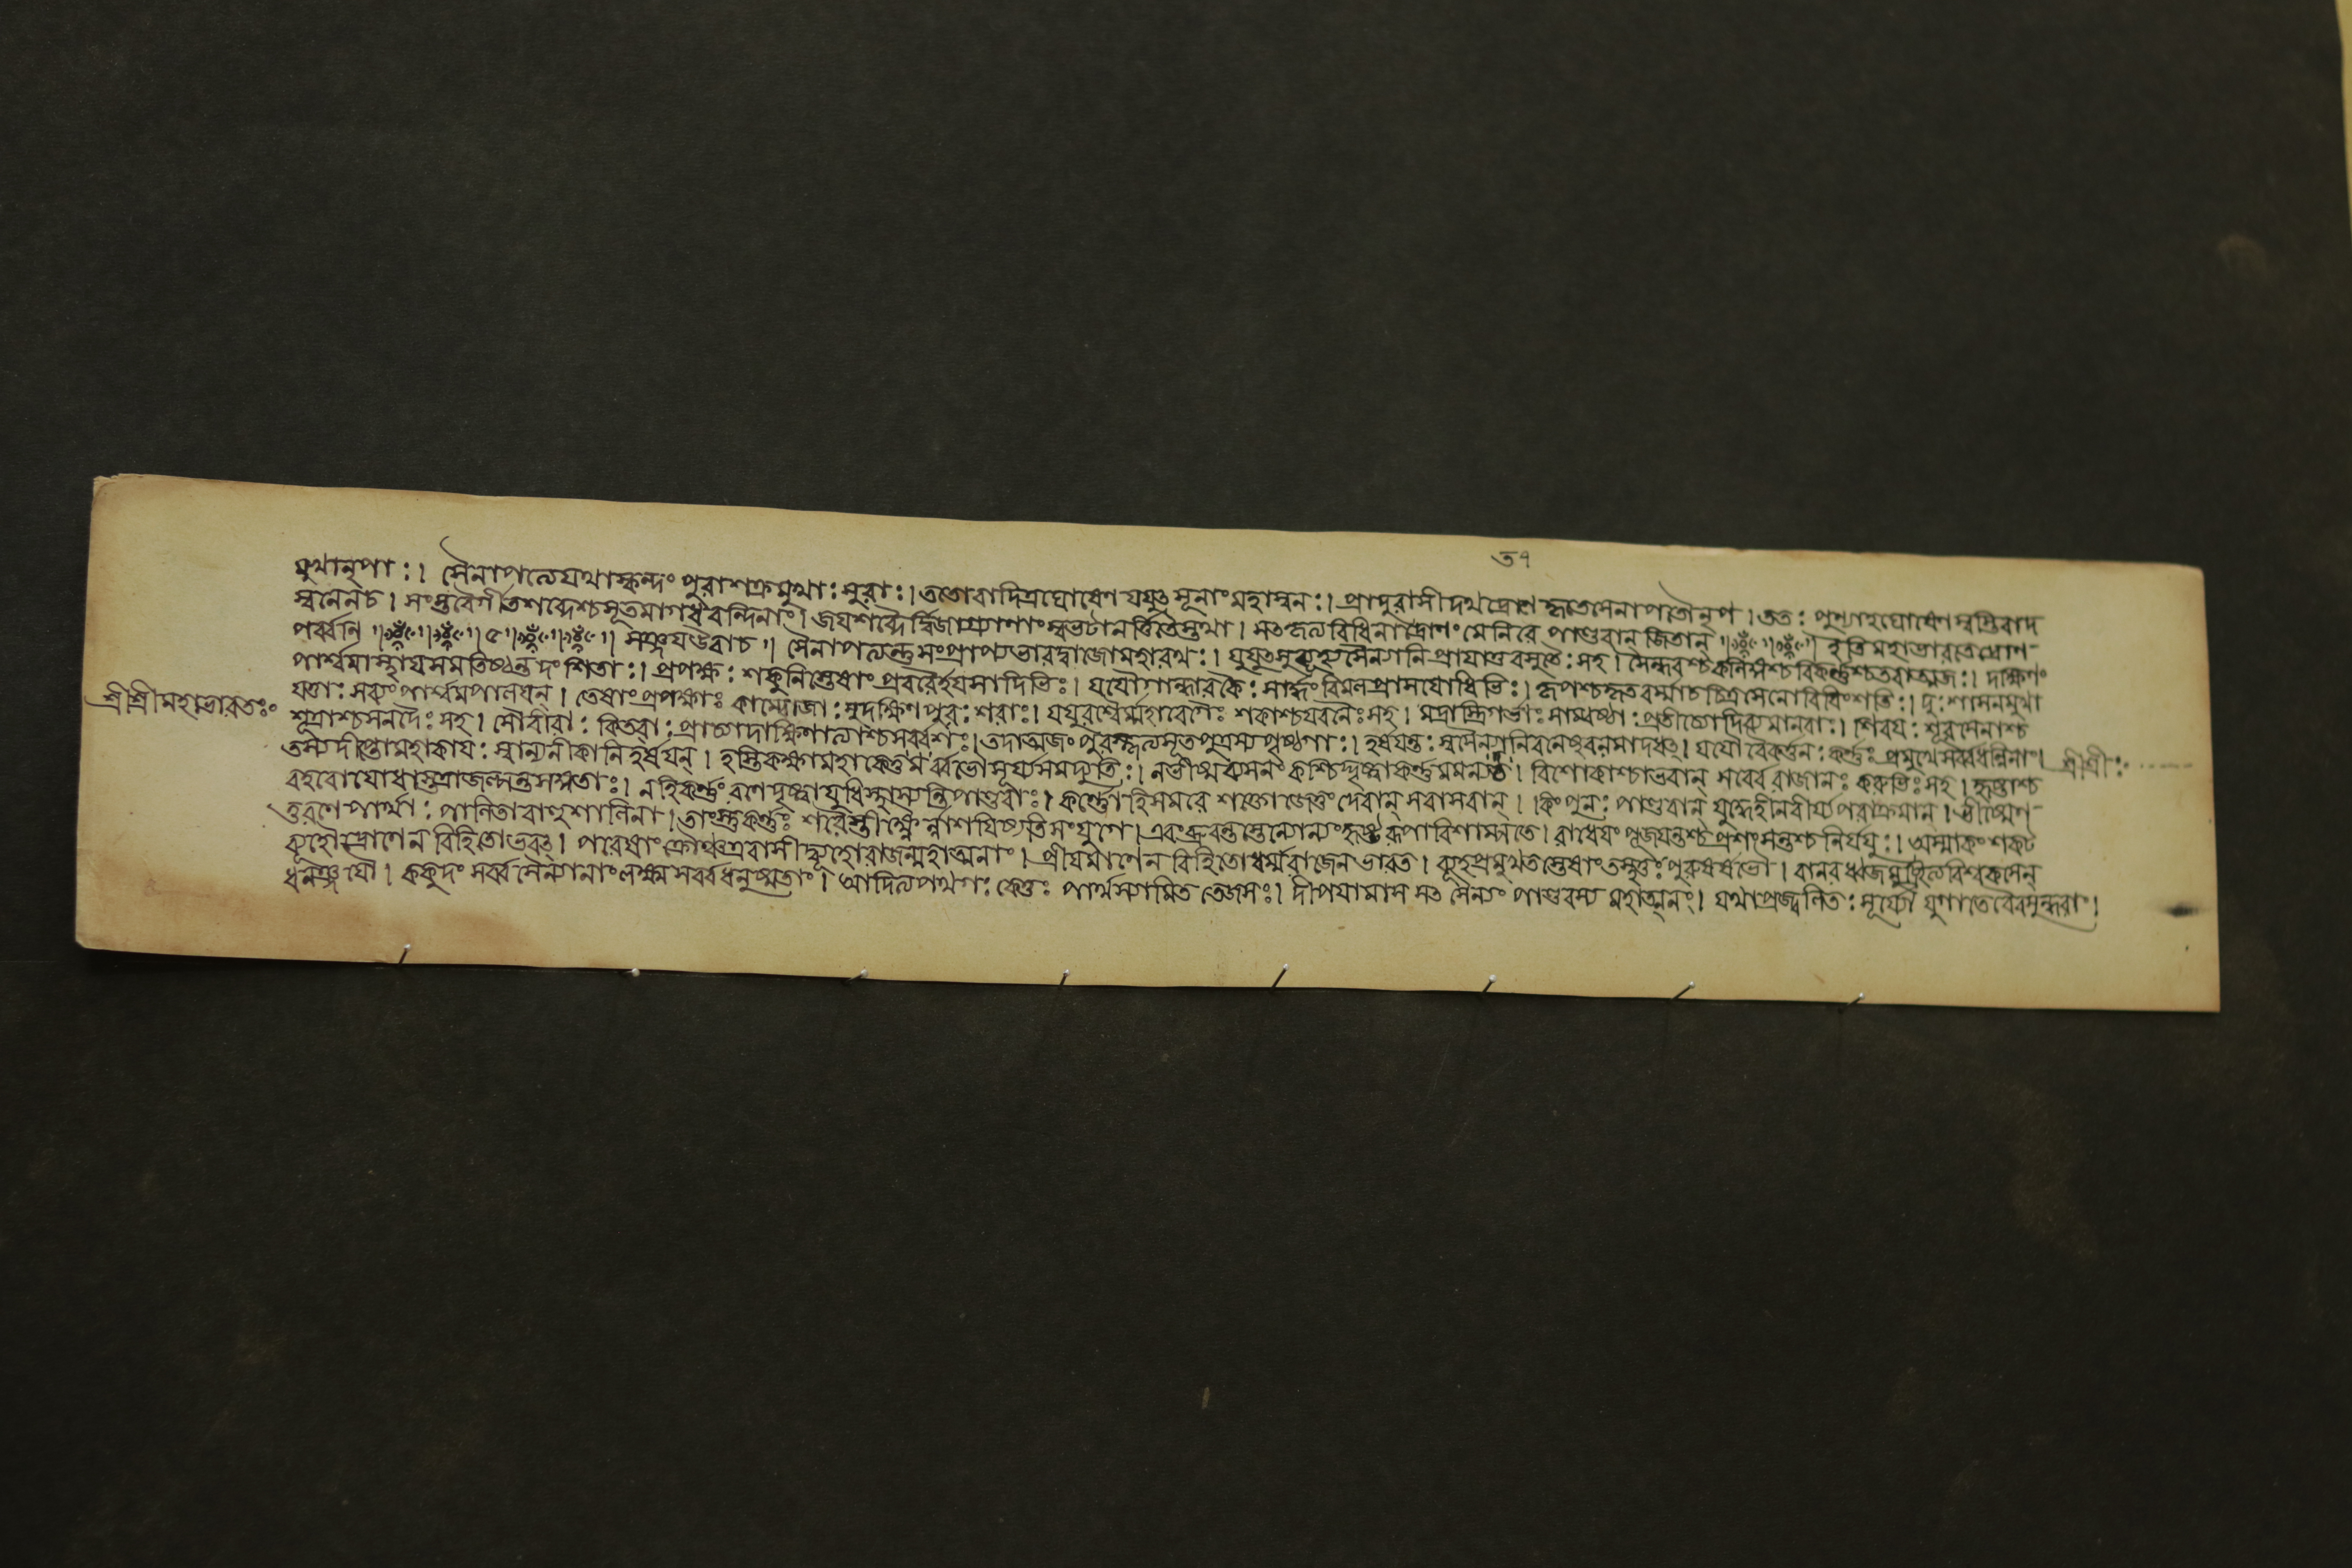 ৩৭
মুখানৃপাঃ। সৈনাপত্যেযথাস্কন্দং পুরাশক্রমুখাঃ সুরাঃ। ততোবাদিত্রঘোষেণ মহাস্বনঃ। প্রাদুরাসীদথদ্রোণে কৃতেসেনাপতৌনৃপ। ততঃ পুণ্যাহঘোষেণ স্বস্তিবাদ
স্বনেনচ। সংস্তবৈর্গীতশব্দৈশ্চসূতমাগধবন্দিনাং। জয়শব্দৈর্দ্বিজাগ্র্যাণাং সুভটানর্ত্তিতৈস্তথা। সৎকৃত্যবিধিনাদ্রোণং মেনিরে পাণ্ডবান্ জিতান্॥ ॥ ইতি মহাভারতেদ্রোণ
পর্ব্বণি ॥ ॥ ৫॥ ॥ ॥ সঞ্জয়উবাচ॥ সৈনাপত্যন্তুসংপ্রাপ্যভারদ্বাজোমহারথঃ। যুযুৎসুর্ব্যূহ্যসৈন্যানি প্রাযাত্তবসুতৈঃ সহ। সৈন্ধবশ্চকলিঙ্গশ্চ বিকর্ণশ্চতবাত্মজঃ। দক্ষিণং
পার্শ্বমাস্থায়সমতিষ্ঠন্তদংশিতাঃ। প্রপক্ষঃ শকুনিস্তেষাং প্রবরৈর্হয়সাদিভিঃ। যযৌগান্ধারকৈঃ সার্দ্ধং বিমলপ্রাসযোধিভিঃ। কৃপশ্চকৃতবর্ম্মাচচিত্রসেনোবিবিংশতিঃ। দুঃশাসনমুখা
যত্তাঃ সব্যংপার্শ্বমপালয়ন্। তেষাং প্রপক্ষাঃ কাম্বোজাঃ সুদক্ষিণপুরঃশরাঃ। যযুরশ্বৈর্ম্মহাবেগৈঃ শকাশ্চযবনৈঃ সহ। মদ্রাস্ত্রিগর্ত্তাঃ সাম্বষ্ঠাঃ প্রতীচ্যোদীচ্যমালবাঃ। শিবয়ঃ শূরসেনাশ্চ
শূদ্রাশ্চমলদৈঃ সহ। সৌবীরাঃ কিতবাঃ প্রাচ্যাদাক্ষিণাত্যাশ্চসর্ব্বশঃ। তবাত্মজং পুরস্কৃত্যসূতপুত্রস্যপৃষ্ঠগাঃ। হর্ষয়ন্তঃ স্বসৈন্যানিবলেষুবলমাদধুঃ। যযৌবৈকর্ত্তনঃ কর্ণঃ প্রমুখেসর্ব্বধন্বিনাং।
তস্যদীপ্তোমহাকায়ঃ স্বান্যনীকানিহর্ষয়ন্। হস্তিকক্ষ্যামহাকেতুর্ব্বভৌসূর্য্যসমদ্যুতিঃ। নভীষ্মব্যসনং কশ্চিদ্দৃষ্ট্বাকর্ণমমন্যত। বিশোকাশ্চাভবান্ সর্ব্বেরাজানঃ কুরুভিঃ সহ। হৃষ্টাশ্চ
বহবোযোধাস্তত্রাজল্পন্তসঙ্গতাঃ। নহিকর্ণং রণেদৃষ্ট্বাযুধিস্থাস্যন্তিপাণ্ডবাঃ। কর্ণোহিসমরে শক্তোজেতুংদেবান্ সবাসবান্। কিংপুনঃ পাণ্ডবান্ যুদ্ধেহীনবীর্য্যপরাক্রমান্। ভীষ্মেণ
তুরণেপার্থাঃ পালিতাবাহুশালিনা। তাংস্তুকর্ণঃ শরৈস্তীক্ষ্ণৈর্ন্নাশয়িষ্যতিসংযুগে। এবংব্রুবন্তস্তেন্যোন্যংহৃষ্টরূপাবিশাম্পতে। রাধেয়ং পূজয়ন্তশ্চপ্রশংসন্তশ্চনির্যযুঃ। অস্মাকং শকট
ব্যূহোদ্রোণেন বিহিতোভবৎ। পরেষাংক্রৌঞ্চএবাসীদ্ব্যূহোরাজন্মহাত্মনাং। প্রীয়মাণেন বিহিতোধর্ম্মরাজেনভারত। ব্যূহপ্রমুখতস্তেষাংতস্থতুঃ পুরুষর্ষভৌ। বানরধ্বজমুচ্ছ্রিত্যবিশ্বক্সেন
ধনঞ্জয়ৌ। ককুদং সর্ব্বসৈন্যানাংলক্ষ্ম সর্ব্বধনুষ্মতাং। আদিত্যপথগঃ কেতুঃ পার্থস্যামিততেজসঃ। দীপয়ামাস সৈন্যং পাণ্ডবস্য মহাত্মনঃ। যথাপ্রজ্বলিতঃ সূর্য্যো যুগান্তেবৈবসুন্ধরাং।
শ্রীশ্রীমহাভারতঃ
শ্রীশ্রীঃ